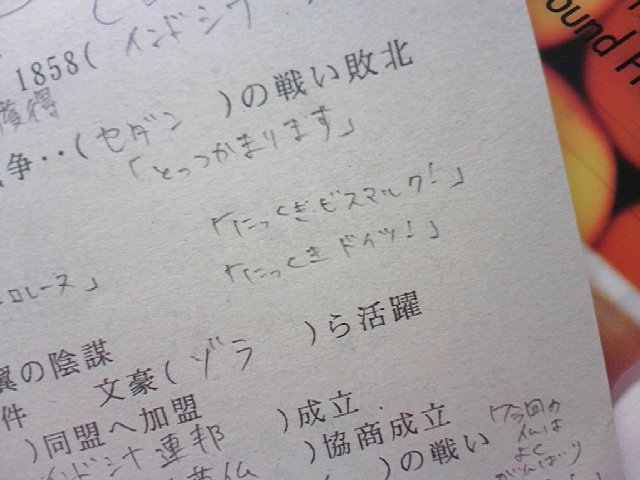 1858(インドシナ
獲得
争‥(セダン )の戦い敗北
「とっつかまります」
「にっくき・ビスマルク!」
「にっくきドイツ!」
ロレーヌ」
翼の陰謀
件 文豪(ゾラ )ら活躍
)同盟へ加盟
インドシナ連邦 )成立
)協商成立
)の戦い
「今回の
仏は
よく
がんばり
ound